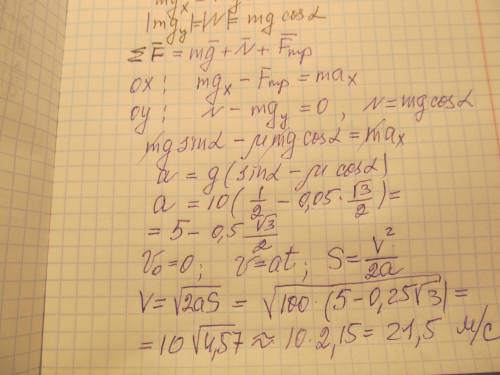 mgx
|mgy|=|N|= mg cosα
ΣF̅ = mg̅ + N̅ + F̅тр
ox: mgx − Fтр = max
oy: N − mgy = 0, N = mg cosα
mg sinα − μ mg cosα = max
a = g(sinα − μ cosα)
a = 10(1/2 − 0,05·√3/2) =
= 5 − 0,5 √3/2
v₀=0; v=at; S= v²/2a
V = √2aS = √100·(5−0,25√3) =
= 10√4,57 ≈ 10·2,15 = 21,5 м/с